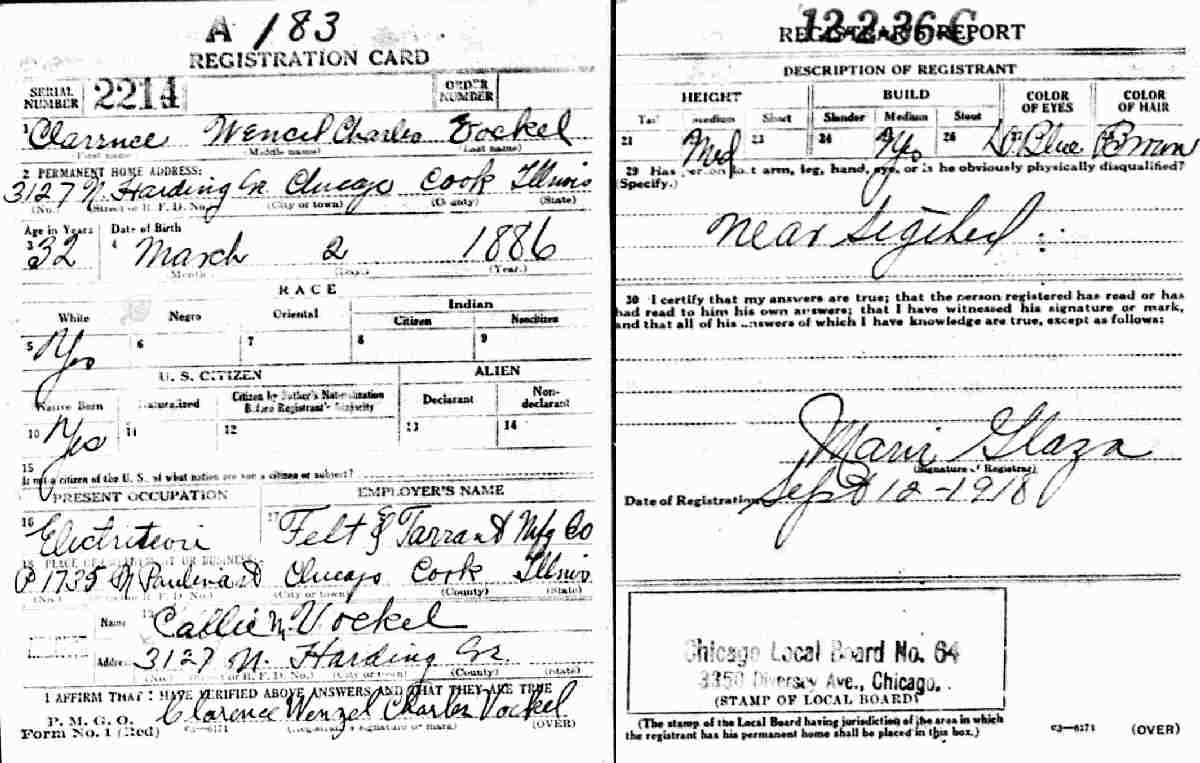 A 183
REGISTRATION CARD
SERIAL NUMBER 2214 ORDER NUMBER
1 Clarence Wencel Charles Vockel
(First name) (Middle name) (Last name)
2 PERMANENT HOME ADDRESS:
3127 N. Harding Chicago Cook Illinois
(No.) (Street or R. F. D. No.) (City or town) (County) (State)
Age in Years Date of Birth
3 32 4 March 2 1886
(Month.) (Day.) (Year.)
RACE
White Negro Oriental Indian
Citizen Noncitizen
5 Yes 6 7 8 9
U. S. CITIZEN ALIEN
Native Born Naturalized Citizen by Father's Naturalization Before Registrant's Majority Declarant Non-declarant
10 Yes 11 12 13 14
15
If not a citizen of the U. S. of what nation are you a citizen or subject?
PRESENT OCCUPATION EMPLOYER'S NAME
16 Electriteon 17 Felt & Tarrant Mfg Co
18 PLACE OF EMPLOYMENT OR BUSINESS:
1735 N Paulina St Chicago Cook Illinois
(No.) (Street or R. F. D. No.) (City or town) (County) (State)
Name 19 Callie M. Vockel
Address 3127 N. Harding
(No.) (Street or R. F. D. No.) (City or town) (County) (State)
I AFFIRM THAT I HAVE VERIFIED ABOVE ANSWERS AND THAT THEY ARE TRUE
P. M. G. O.
Form No. 1 (Red) c3—6171 Clarence Wenzel Charles Vockel
(Registrant's signature or mark) (OVER)
12-2-36-C
REGISTRAR'S REPORT
DESCRIPTION OF REGISTRANT
HEIGHT BUILD COLOR OF EYES COLOR OF HAIR
Tall Medium Short Slender Medium Stout
21 Med 23 24 Yes 26 Blue Brown
29 Has person lost arm, leg, hand, eye, or is he obviously physically disqualified?
(Specify.)
near sigthed
30 I certify that my answers are true; that the person registered has read or has
had read to him his own answers; that I have witnessed his signature or mark,
and that all of his answers of which I have knowledge are true, except as follows:
Glaza
(Signature of Registrar)
Date of Registration Sept 12-1918
Chicago Local Board No. 64
3350 Diversey Ave., Chicago.
(STAMP OF LOCAL BOARD)
(The stamp of the Local Board having jurisdiction of the area in which
the registrant has his permanent home shall be placed in this box.)
c3—6171 (OVER)